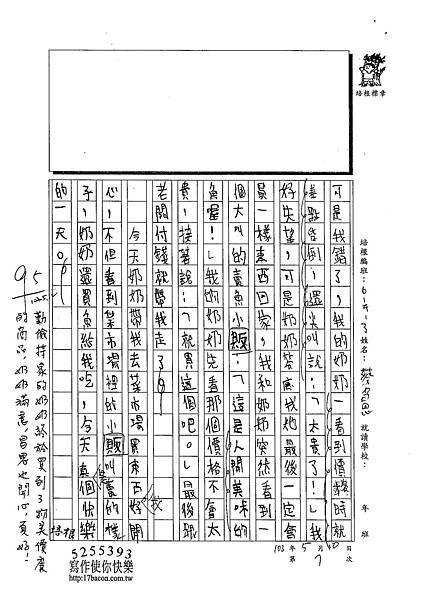 培根標章
可是我錯了,我的奶奶一看到價錢時就
差點昏倒,還尖叫說:「太貴了!」我
好失望,可是奶奶答應我她最後一定會
買一樣東西回家,我和奶奶突然看到一
個大叫的賣魚小販:「這是人間美味的
魚喔!」我的奶奶先看那個價格不會太
貴,接著說:「就買這個吧。」最後跟
老闆付錢就帶我走了。
今天奶奶帶我去菜市場買東西好開
心,不但看到菜市場裡的小販叫賣的樣
子,奶奶還買魚給我吃,今天真個快樂
的一天。
95
勤儉持家的奶奶終於買到了物美價廉
的商品,奶奶滿意,昌恩也開心,真好!
培根
培根職班:
姓名:
就讀學校:
年 班
103年5月10日
次
5255393
寫作使你快樂
http://17bacon.com.tw/